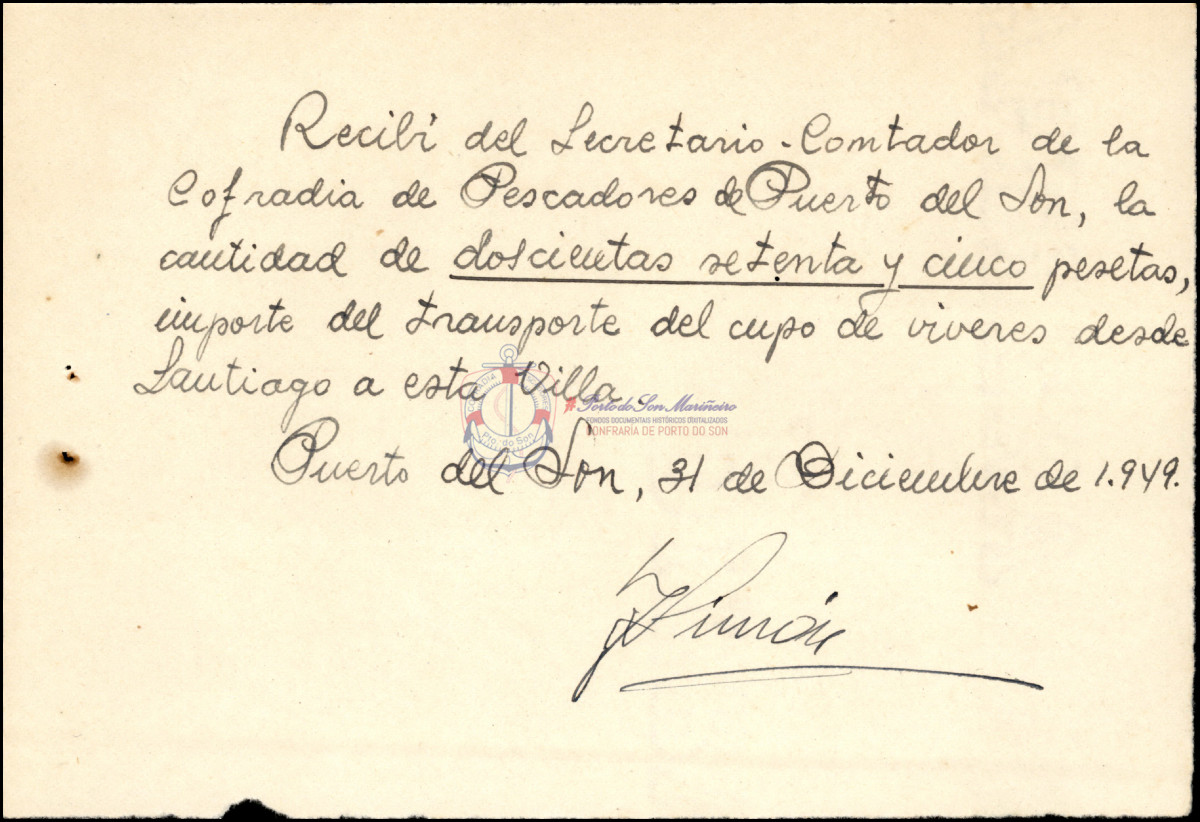 Recibí del Secretario-Contador de la
Cofradia de Pescadores de Puerto del Son, la
cantidad de doscientas setenta y cinco pesetas,
importe del transporte del cupo de viveres desde
Santiago a esta Villa.
#Porto do Son Mariñeiro
FONDOS DOCUMENTAIS HISTÓRICOS DIXITALIZADOS
CONFRARÍA DE PORTO DO SON
Pto. do Son
Puerto del Son, 31 de Diciembre de 1.949.